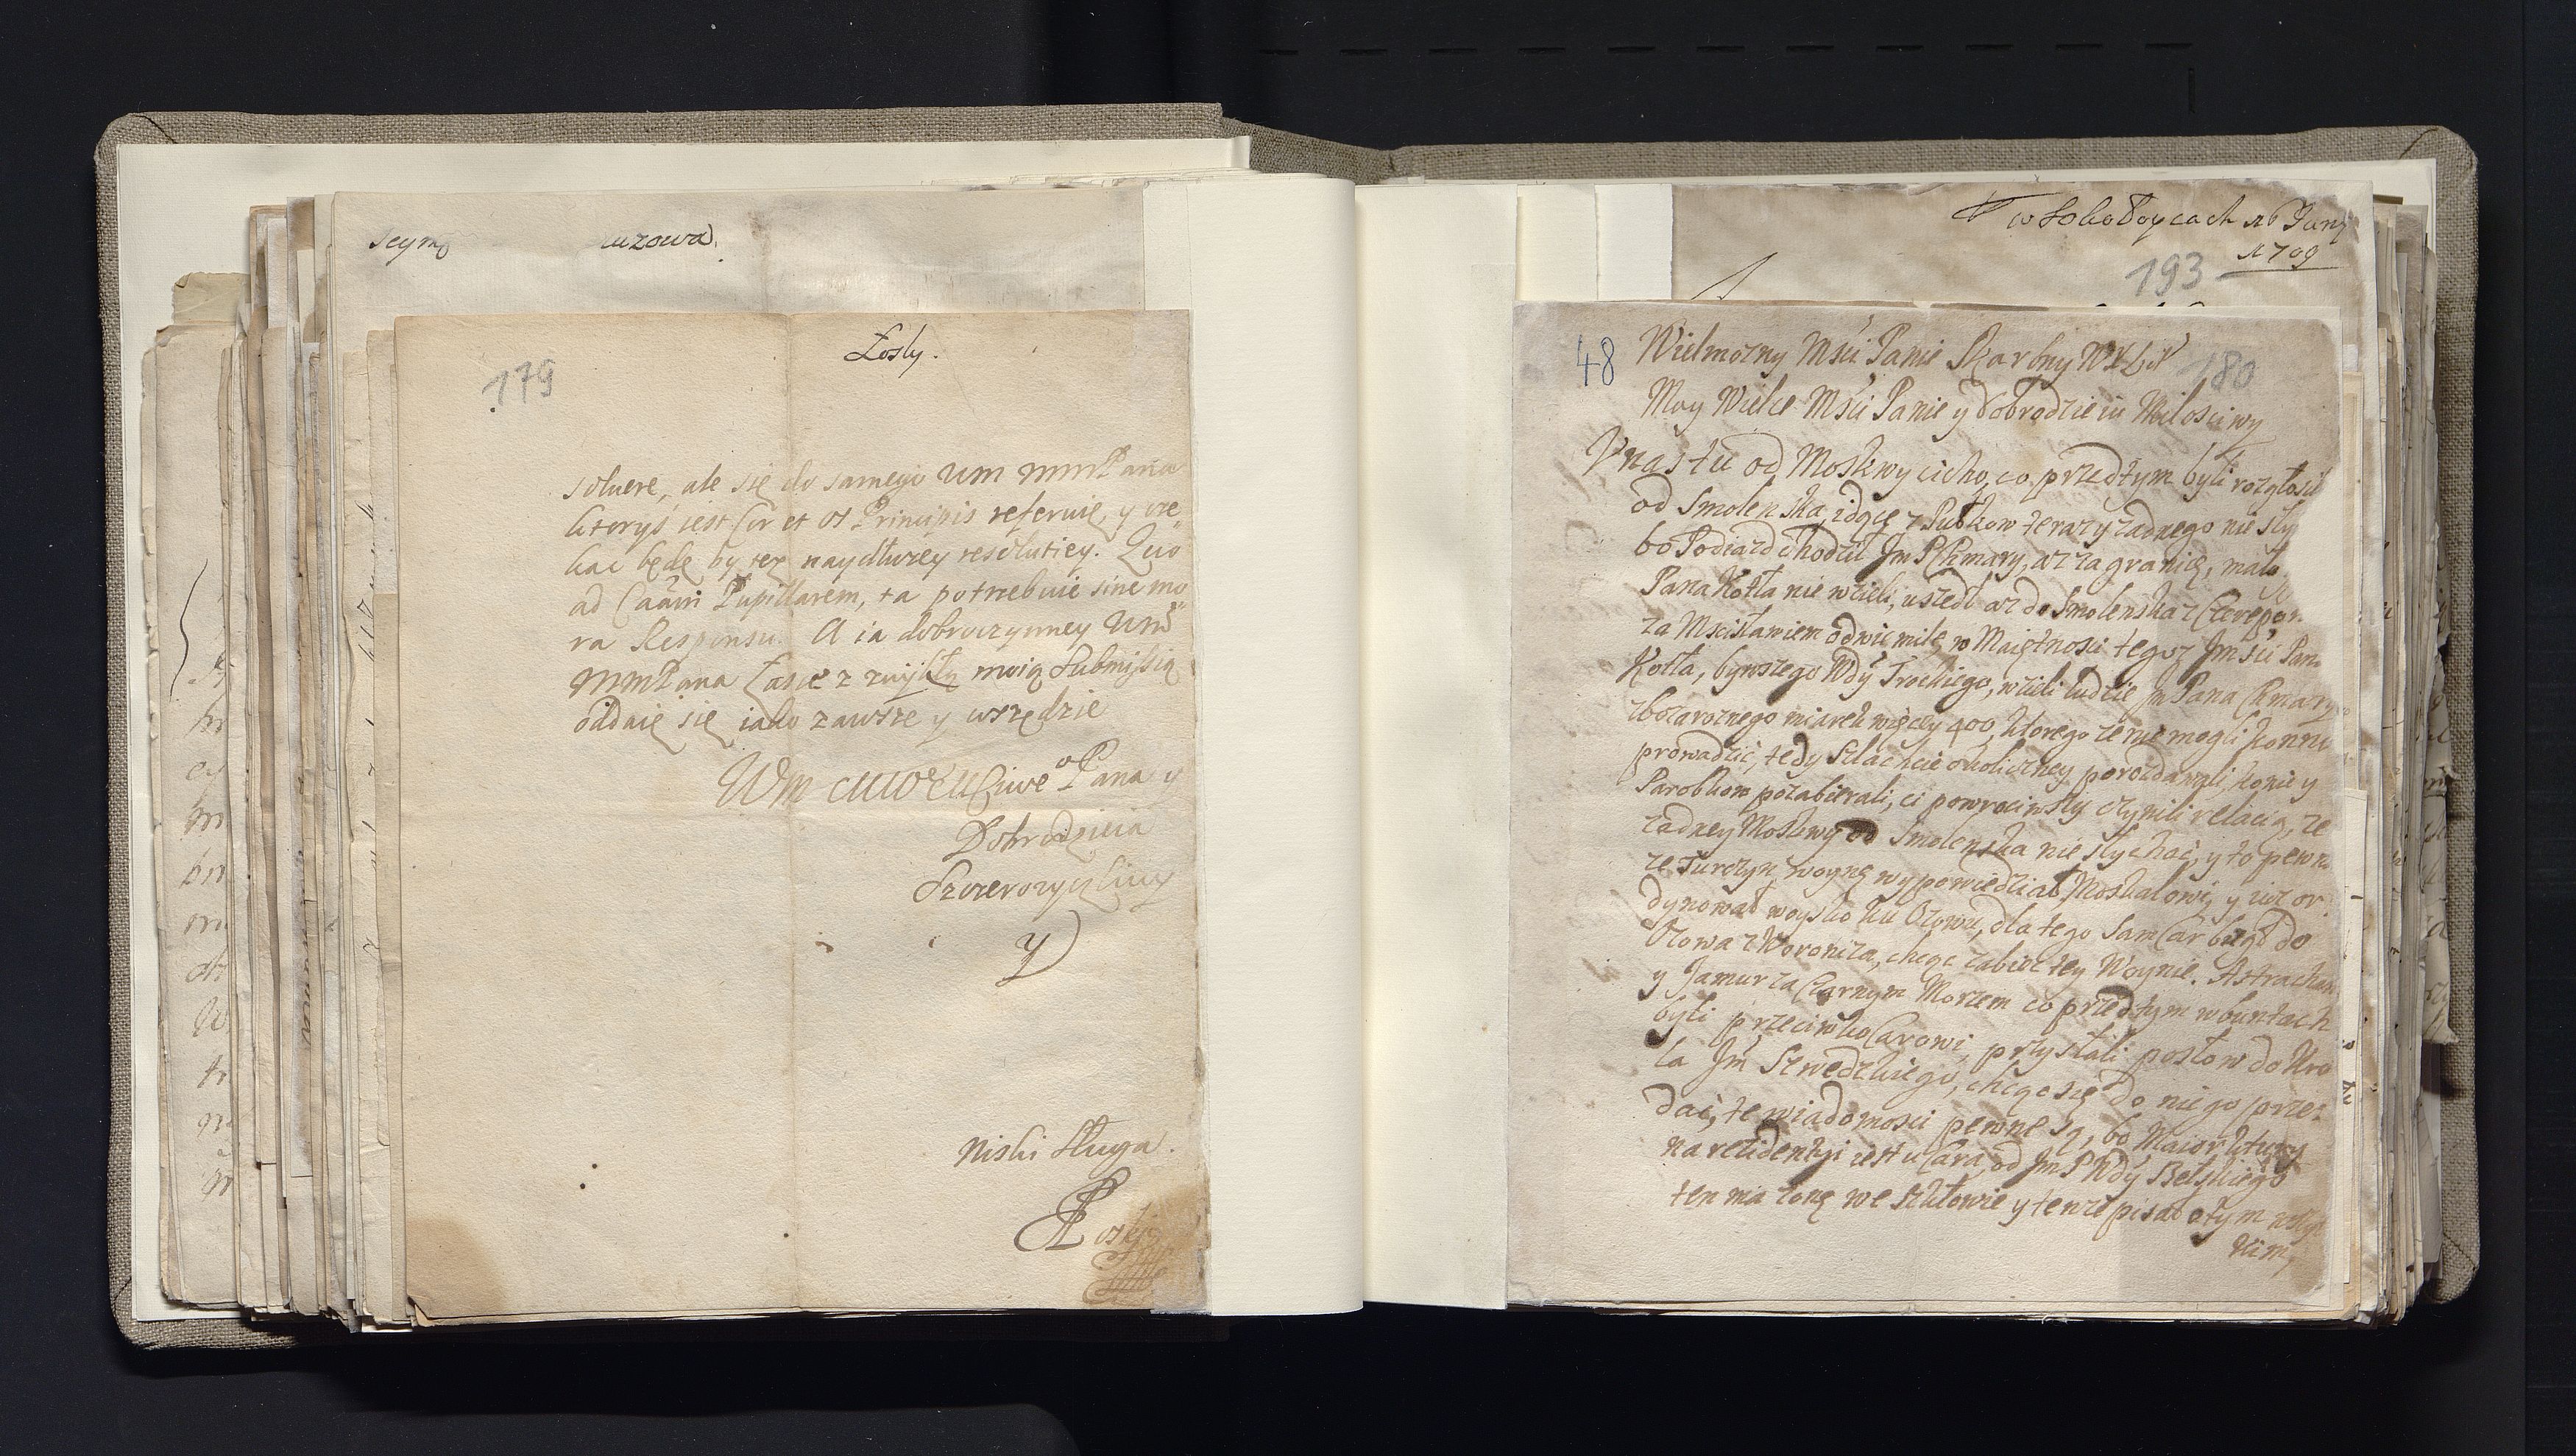 Seym
uzowa.
Łosly.
179
soluere, ale się do samego Um mmPana
ktoryś iest Cor et os Principis referuię, y cze"
kac będę by tez naydłuzey resolutiey. Quo
ad Caâm Pupillarem, ta potrzebuie sine mo"
ra Responsu. A ia dobroczynney Um
mmPana Łasce z zwykłą moią Submissią
oddaię się iako zawsze y wszędzie
Pana y
Dobrodzieia
Szczerozyczliwy
y
Niski Sługa.
w Sobotoycach 16 Juny
1709
193
48
180
Wielmozny Mści Panie Skarbny WXLit
Moy Wielce Mści Panie y Dobrodzieiu Miłosciwy
V nas tu od Moskwy cicho, co przedtym byli rozgłosil
od Smolenska, idące z Pułkow teraz y zadnego nie sły
bo Podiazd chodził Jm P Chmary, az za granicę, mało
Pana Kotła nie wzieli, uszedł az do Smolenska z
za Mscisławiem odwie mile, w Maiętnosci tegoz Jmsci Pana
Kotła, bywszego Wdy Trockiego, wzieli ludzie Jm Pana Chmary
zboza roznego miarek więcey 400, ktorego ze nie mogli
prowadzic, tedy Szlachcie okoliczney porozdawali, konie y
Parobkow pozabierali, ci powrociwszy czynili relacią, ze
zadney Moskwy od Smolenska nie słychać, y to pewna
ze Turczyn woynę wypowiedział Moskalowi, y iuz or
dynował woysko ku Ozowu, dla tego Sam Car biegł do
Ozowa z Woroniza, chcąc zabiec tey Woynie. Astrachan
y Jamurza Czarnym Morzem co przedtym w buntach
byli przeciwko Carowi, przysłali posłow do Kro
la Jm Szwedzkiego, chcąc się do niego prze"
dać, te wiadomosci pewne są, bo Maior ktory
na residentyi iest u Cara, od Jm P Wdy Bełskiego
ten ma zonę we Szkłowie y tenze pisał o tym
kim,